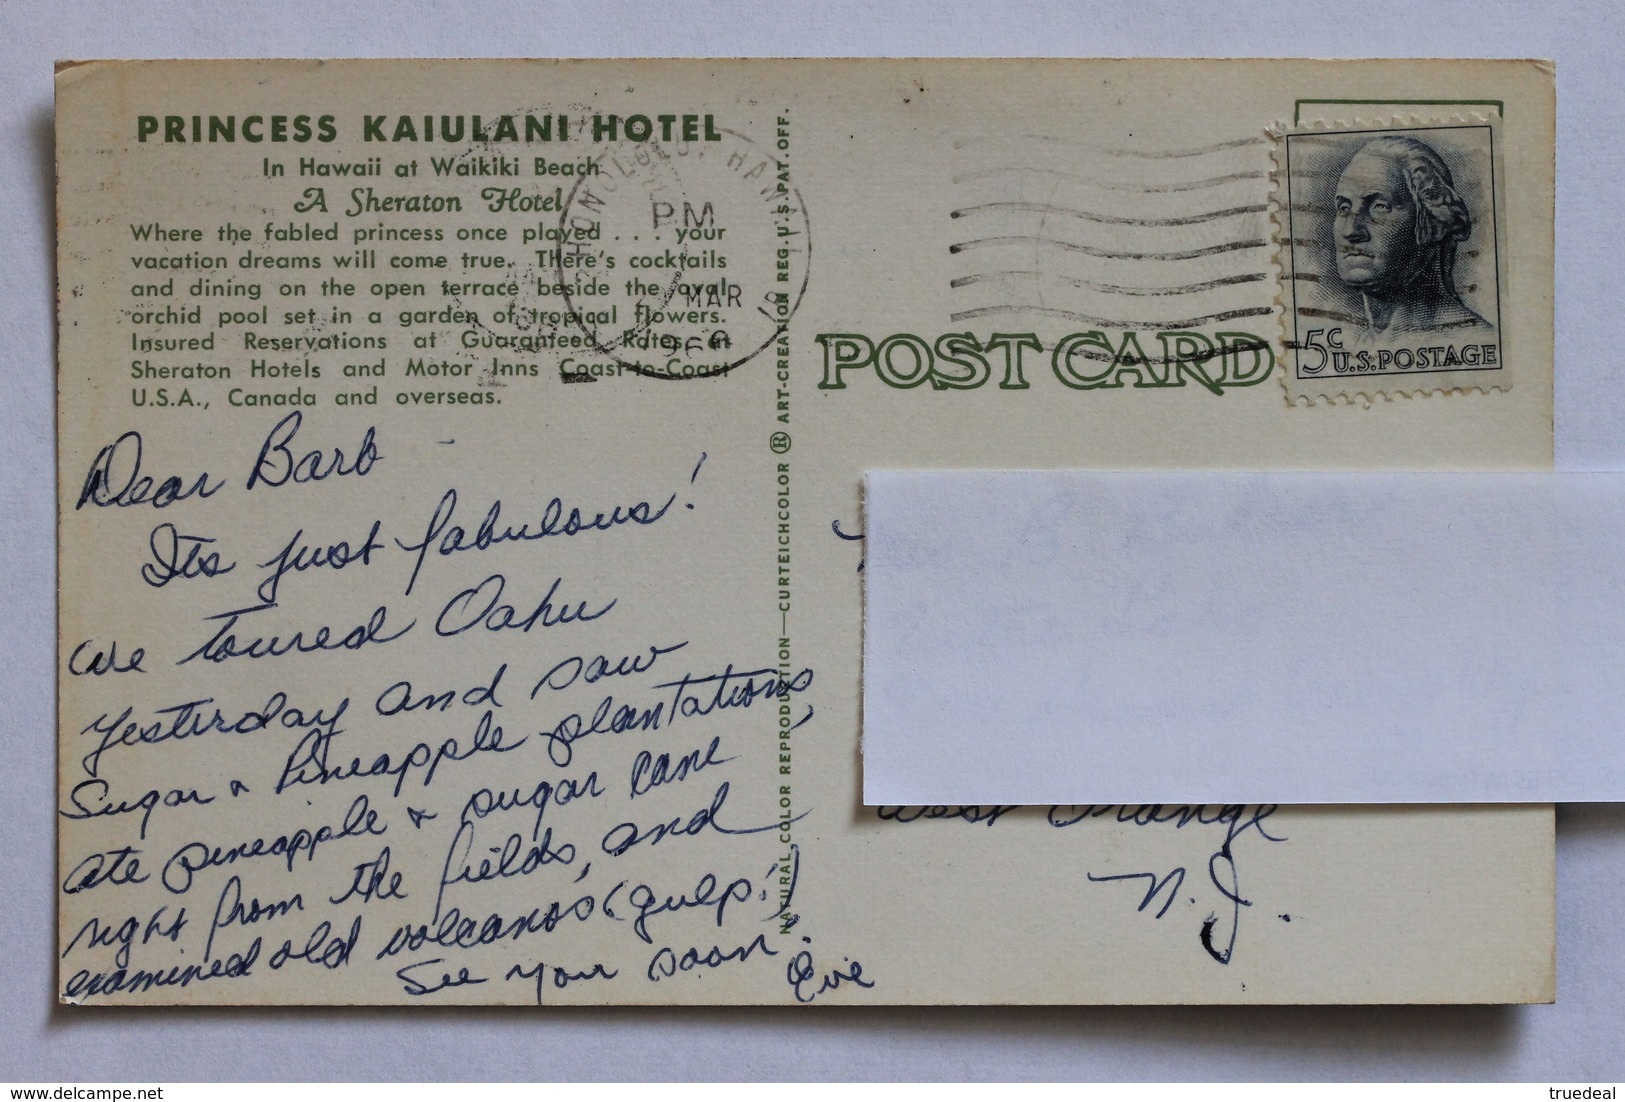 PRINCESS KAIULANI HOTEL
In Hawaii at Waikiki Beach
A Sheraton Hotel
Where the fabled princess once played . . . your
vacation dreams will come true. There's cocktails
and dining on the open terrace beside the oval
orchid pool set in a garden of tropical flowers.
Insured Reservations at Guaranteed Rates at
Sheraton Hotels and Motor Inns Coast-to-Coast
U.S.A., Canada and overseas.
HONOLULU, HAWAII
PM
MAR
Dear Barb -
Its just fabulous!
We toured Oahu
yesterday and saw
sugar & pineapple plantations,
ate pineapple & sugar cane
right from the fields, and
examined old volcanos (gulp!)
See you soon.
Eve
NATURAL COLOR REPRODUCTION—CURTEICHCOLOR ® ART-CREATION REG. U.S. PAT. OFF.
POST CARD
5c
U.S. POSTAGE
West Orange
N.J.
delcampe.net
truedeal